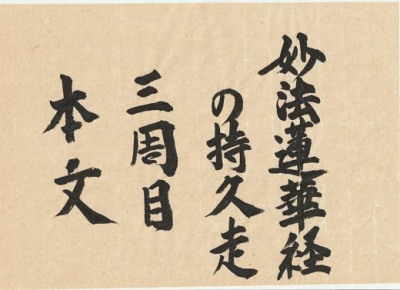 妙法蓮華経
の持久走
三周目
本文